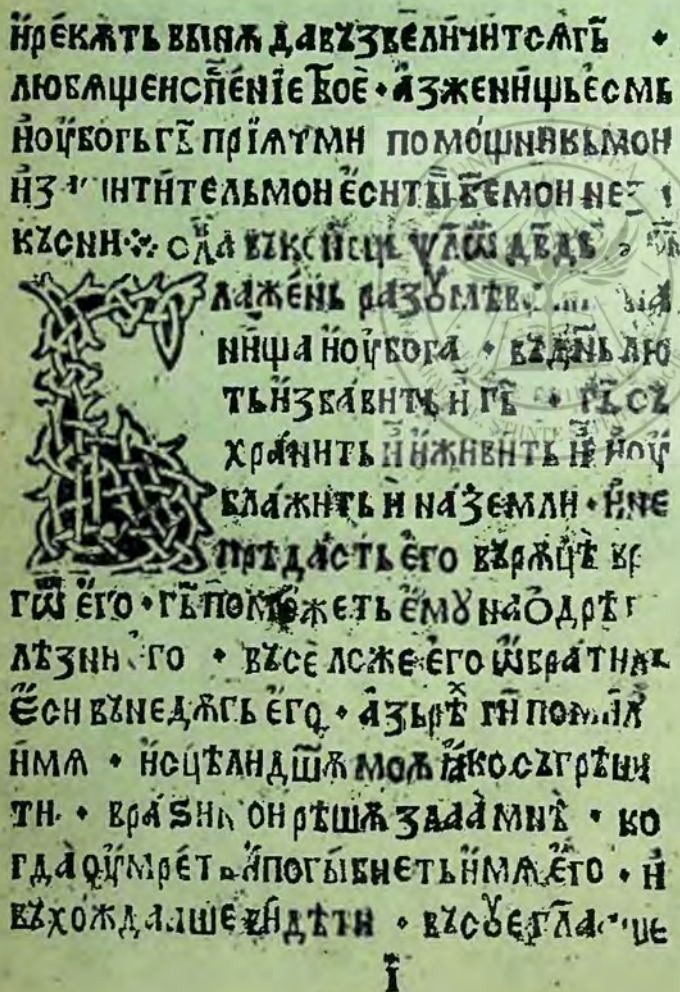 и҆рекѫть вынѫ да въꙁвеличитсѧ г҃ь ·
любѧщеи сп҃енїе твоѐ · а҆ꙁ же нищь е҆смь
и҆ оу҆богь г҃ь прїѧ мѧ помо́щникь мои
и҆ꙁ е҆си ты̀ б҃е мои не
късни ⁘ сл҃а въ конець ѱл҃ѡ дв҃дь
Блаже́нь раꙁꙋмѣв на
нища и оу҆бога · въ дн҃ь лю
ть иꙁба́вить и г҃ь · г҃ь съ
хра́нить и҆ и҆ живить и҆ и҆ оу҆
блажить и҆ на ꙁемли · и҆ не
предасть е҆го въ рѫцѣ вр
гѡ҃ е҆го · г҃ь поможеть е҆мꙋ на о҆дрѣ
лѣꙁни го · въсѐ ложе е҆го ѡ҆братиль
е҆си въ недѫгь е҆го · а҆ꙁь рѣ гн҃и помил
и мѧ · и҆сцѣли дш҃ѫ моѫ ꙗ҆ко съгрѣши
ти · врази мои рѣшѫ ꙁлаа̀ мнѣ̀ · ко
гда̀ оу҆мрет и҆ погыбнеть и҆мѧ е҆го · и҆
въхождааше ви́дѣти · въсꙋе гл҃а ше
ї